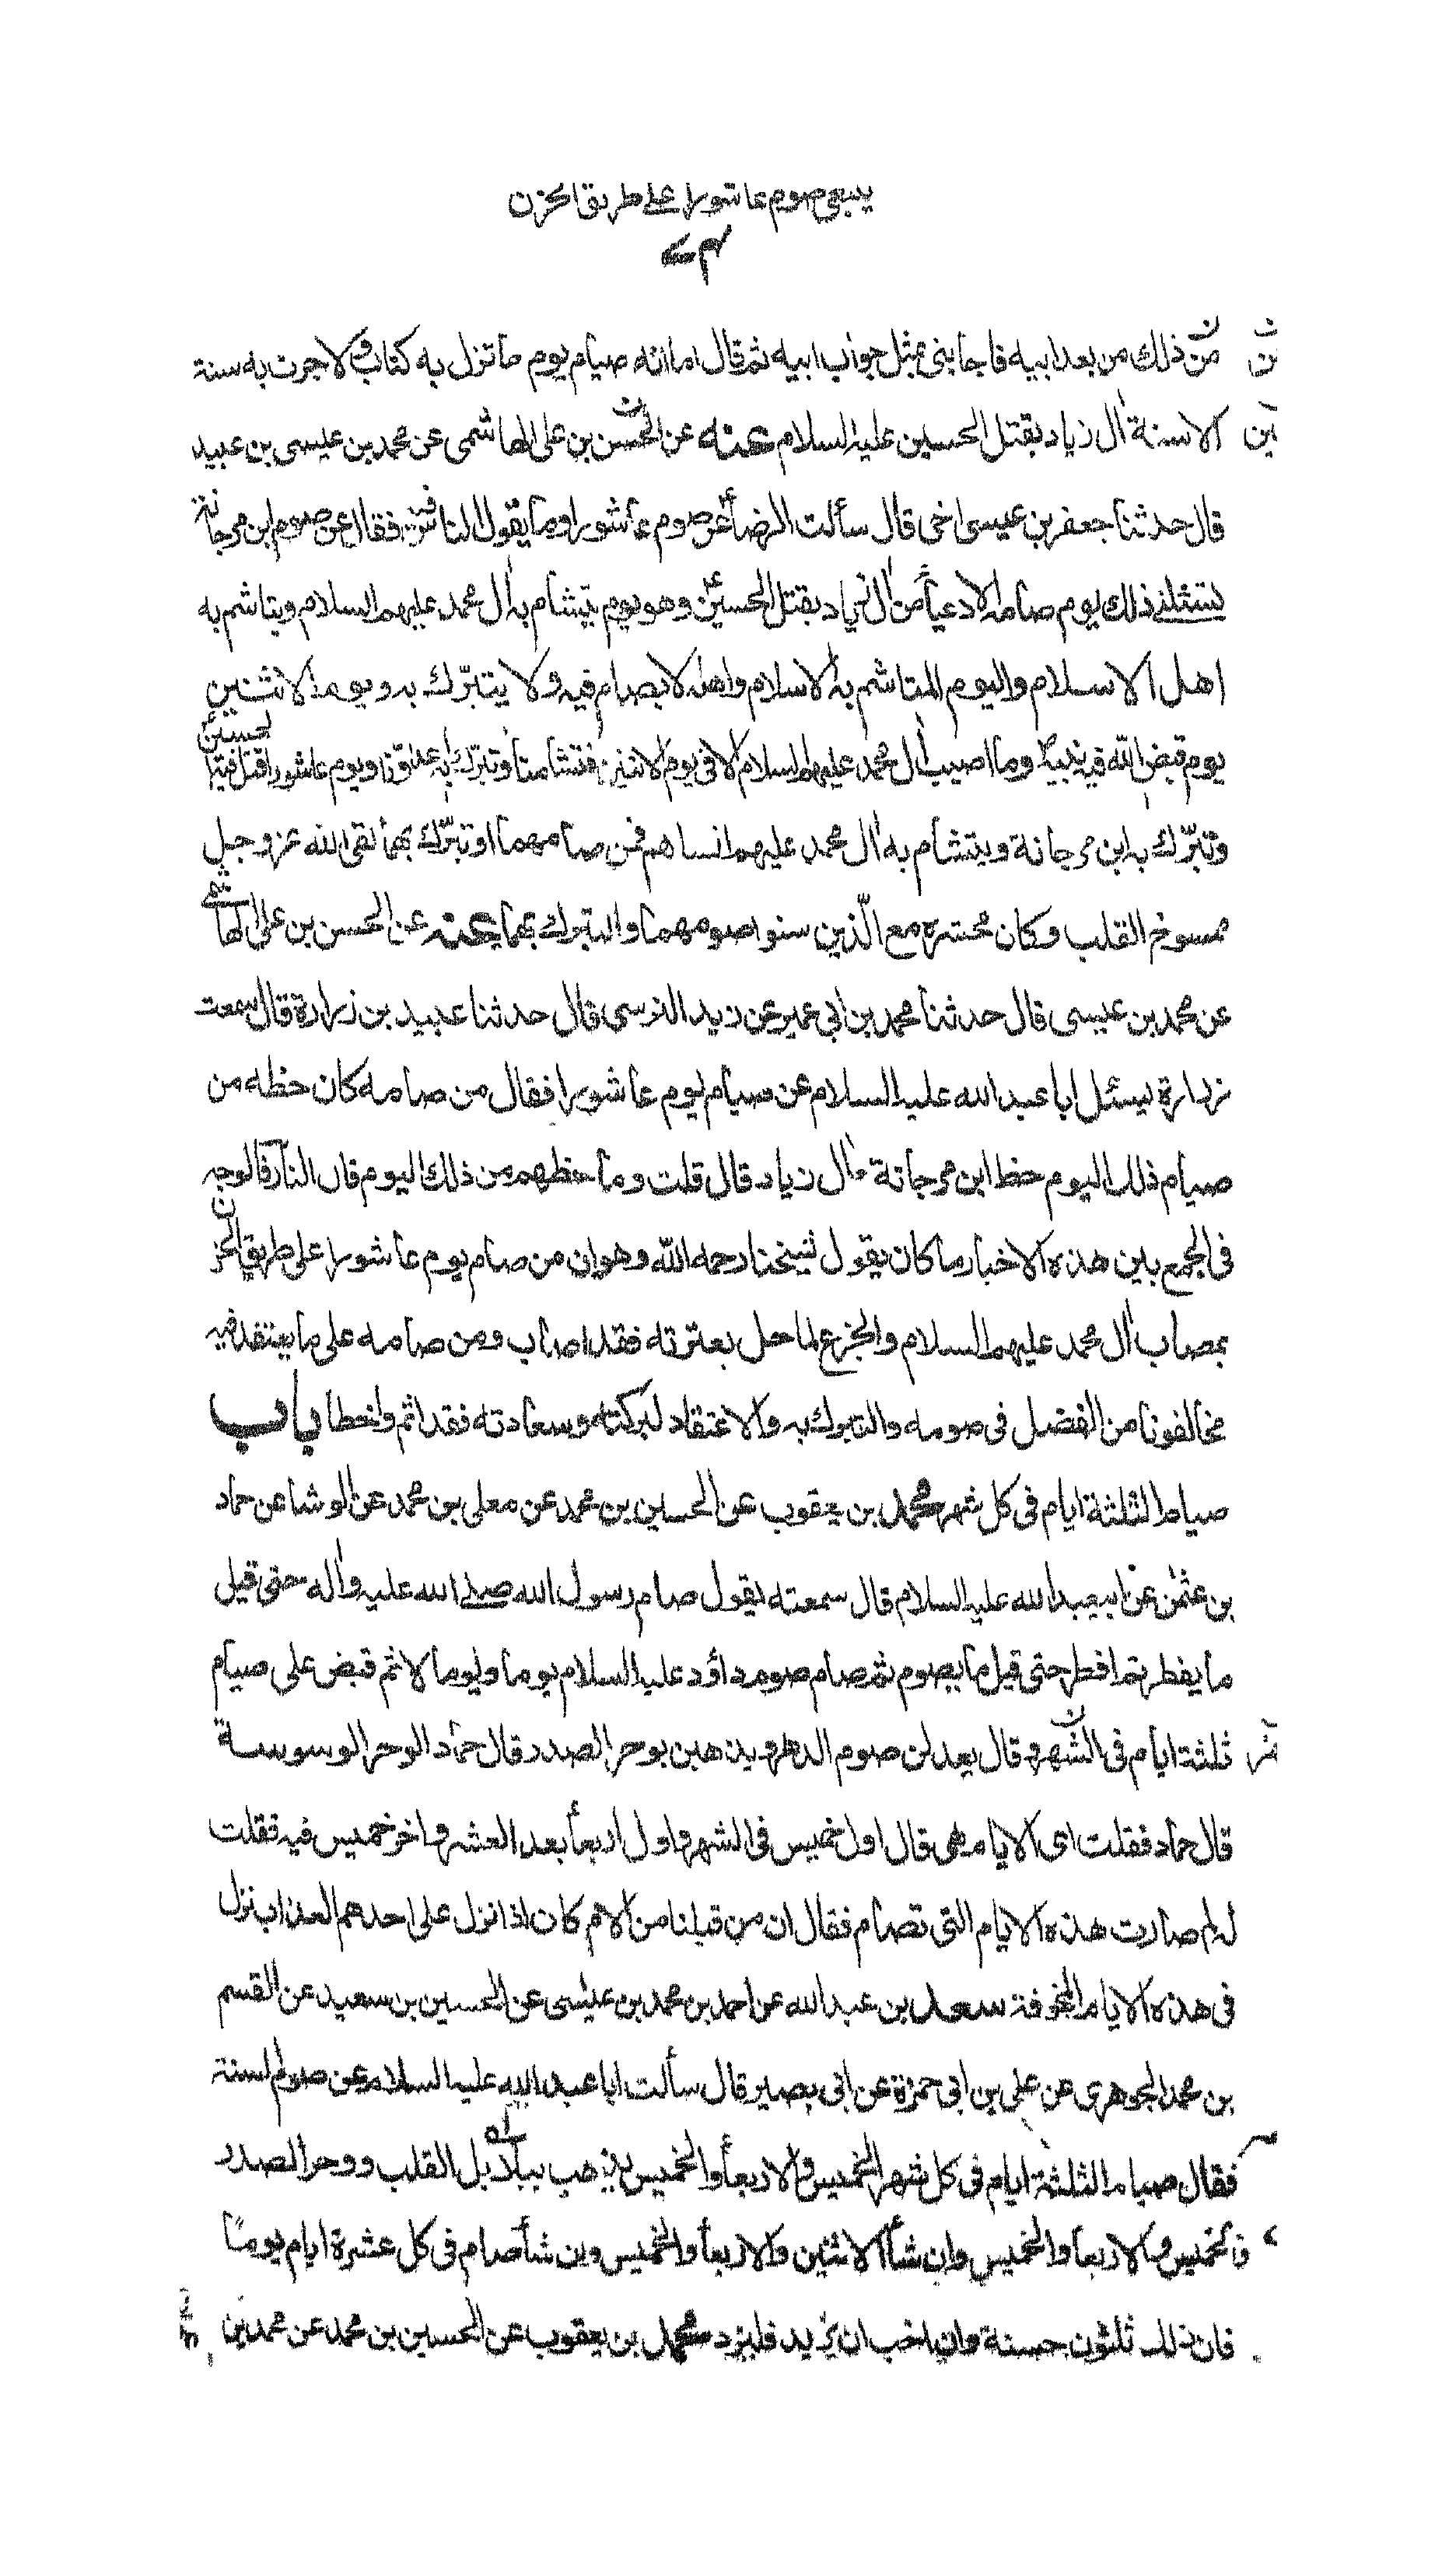 ينبغي صوم عاشورا على طريق الحزن
من ذلك من بعد ابيه فاجابني بمثل جواب ابيه ثم قال اما انه صيام يوم ما نزل به كتاب ولا جرت به سنة
الا سنة آل زياد بقتل الحسين عليه السلام عنه عن الحسن بن على الهاشمى عن محمد بن عيسى بن عبيد
قال حدثنا جعفر بن عيسى اخى قال سألت الرضا ع عن صوم عاشورا وما يقول الناس فيه فقال عن صوم ابن مرجانة
تسئلنى ذلك يوم صامه الادعيأ من آل زياد بقتل الحسين ع وهو يوم يتشأم به آل محمد عليهم السلام ويتاشم به
اهل الاسلام واليوم المتاشم به الاسلام واهله لا يصام فيه ولا يتبرّك به ويوم الاثنين
يوم قبض الله فيه نبيه وما اصيب آل محمد عليهم السلام الا فى يوم الاثنين فتشأمنا وتبرّك به عدونا ويوم عاشورا قتل فيه الحسين ع
وتبرّك به ابن مرجانة ويتشأم به آل محمد عليهم السلام فمن صامهما او تبرّك بهما لقى الله عز وجل
ممسوخ القلب وكان محشره مع الّذين سنوا صومهما والتبرك بهما عنه عن الحسن بن على الهاشمى
عن محمد بن عيسى قال حدثنا محمد بن ابى عمير عن زيد النرسى قال حدثنا عبيد بن زرارة قال سمعت
زرارة يسئل ابا عبد الله عليه السلام عن صيام يوم عاشورا فقال من صامه كان حظه من
صيام ذلك اليوم حظ ابن مرجانة وآل زياد قال قلت وما حظهم من ذلك اليوم قال النار فالوجه
فى الجمع بين هذه الاخبار ما كان يقول شيخنا رحمه الله وهو ان من صام يوم عاشورا على طريق الحزن
بمصاب آل محمد عليهم السلام والجزع لما حل بعترته فقد اصاب ومن صامه على ما يعتقد فيه
مخالفونا من الفضل فى صومه والتبرك به والاعتقاد لبركته وسعادته فقد اثم واخطا باب
صيام الثلثة ايام فى كل شهر محمد بن يعقوب عن الحسين بن محمد عن معلى بن محمد عن الوشا عن حماد
بن عثمن عن ابى عبد الله عليه السلام قال سمعته يقول صام رسول الله صلى الله عليه وآله حتى قيل
ما يفطر ثم افطر حتى قيل ما يصوم ثم صام صوم داؤد عليه السلام يوما ويوما لا ثم قبض على صيام
ثلثة ايام فى الشهر وقال يعدلن صوم الدهر ويذهبن بوحر الصدر قال حماد الوحر الوسوسة
قال حماد فقلت اى الايام هى قال اول خميس فى الشهر واول اربعأ بعد العشر واخر خميس فيه فقلت
لم صارت هذه الايام التى تصام فقال ان من قبلنا من الامم كان اذا نزل على احدهم العذاب نزل
فى هذه الايام المخوفة سعد بن عبد الله عن احمد بن محمد بن عيسى عن الحسين بن سعيد عن القسم
بن محمد الجوهرى عن على بن ابى حمزة عن ابى بصير قال سألت ابا عبد الله عليه السلام عن صوم السنة
فقال صيام الثلثة ايام فى كل شهر الخميس والاربعأ والخميس يذهب ببلابل القلب ووحر الصدر
الخميس والاربعا والخميس وان شأ الاثنين والاربعأ والخميس وان شأ صام فى كل عشرة ايام يوماً
فان ذلك ثلثون حسنة وان احب ان يزيد فليزد محمد بن يعقوب عن الحسين بن محمد عن محمد بن